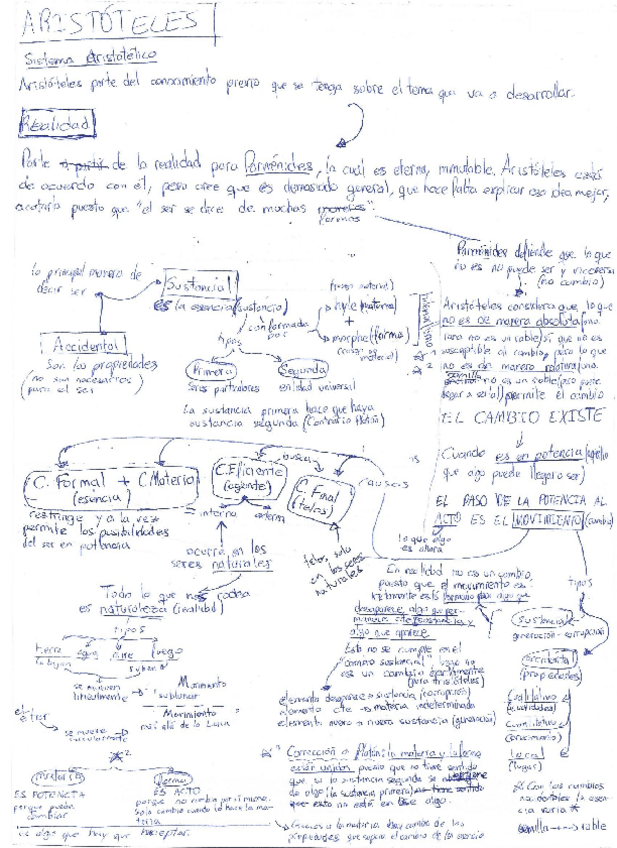 ARISTÓTELES
Sistema Aristotélico
Aristóteles parte del conocimiento previo que se tenga sobre el tema que va a desarrollar.
Realidad
Parte de la realidad para Parménides, la cual es eterna, inmutable. Aristóteles está
de acuerdo con él, pero cree que es demasiado general, que hace falta explicar esa idea mejor,
acotarla puesto que "el ser se dice de muchas
formas".
lo principal manera de
decir ser
Sustancial
Es la esencia (sustancia)
conformada
por
hyle (materia)
+
morphe (forma)
tipos
Primera
Segunda
Seres particulares
entidad universal
La sustancia primera hace que haya
sustancia segunda (Contrario Platón)
Accidental
Son las propiedades
(no son necesarias)
para el ser
Parménides defiende que lo que
no es no puede ser y viceversa
(no cambio)
Aristóteles considera que lo que
no es de manera absoluta
susceptible al cambio, pero lo que
no es de manera relativa
semilla
no es un roble pero puede
llegar a serlo) permite el cambio
EL CAMBIO EXISTE
Cuando es en potencia (aquello
que algo puede llegar a ser)
EL PASO DE LA POTENCIA AL
ACTO ES EL MOVIMIENTO (cambio)
lo que algo
es ahora
causas
C. Formal + C. Materia
(esencia)
C. Eficiente
(agente)
busca
C. Final
(telos)
restringe y a la vez
permite las posibilidades
del ser en potencia
interna
externa
ocurre en los
seres naturales
telos, solo
en los seres
naturales
Todo lo que nos rodea
es naturaleza (realidad)
tipos
tierra agua aire fuego
bajan
suben
se mueven
linealmente
Movimiento
sublunar
Movimiento
más allá de la Luna
el éter
se mueve
circularmente
En realidad no es un cambio,
puesto que el movimiento es
desaparece algo
algo que aparece
Esto no se cumple en el
cambio sustancial, luego no
es un cambio
(para Aristóteles)
elemento desaparece → sustancia (corrupción)
elemento → materia indeterminada
elemento nuevo → nueva sustancia (generación)
tipos
Sustancial
generación - corrupción
accidental
(propiedades)
Cualitativo
(cualidades)
Cuantitativo
Local
(lugar)
Con los cambios
accidentales la esencia
varía
semilla → roble
Materia
ES POTENCIA
porque puede
cambiar
Forma
ES ACTO
porque no cambia por sí misma.
Solo cambia cuando lo hace la materia
Corrección a Platón: la materia y la forma
están unidas, puesto que no tiene sentido
que si la sustancia segunda
de algo (la sustancia primera)
esto no esté en ese algo.
Gracias a la materia hay cambio de las
propiedades que supone el cambio de la esencia
es algo que hay que aceptar.